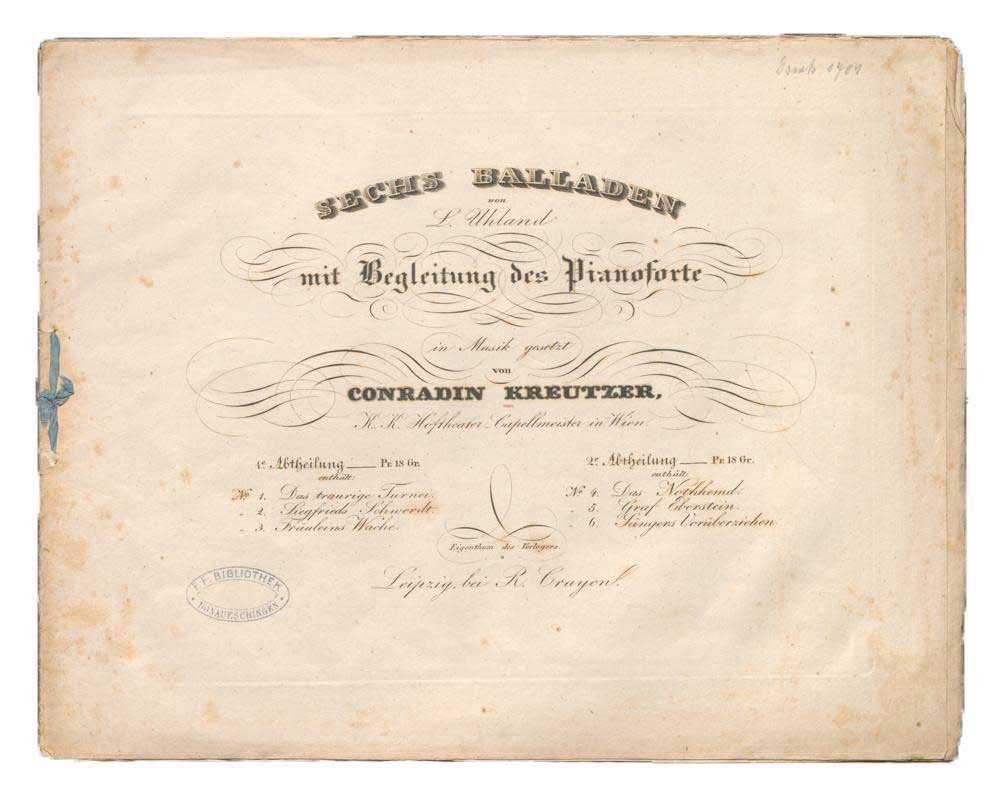 SECHS BALLADEN
von
L. Uhland
mit Begleitung des Pianoforte
in Musik gesetzt
von
CONRADIN KREUTZER,
K. K. Hoftheater-Capellmeister in Wien.
1e. Abtheilung — Pr. 18 Gr.
enthält:
No. 1. Das traurige Turnei.
- 2. Siegfrieds Schwerdt.
- 3. Fräuleins Wache.
2e. Abtheilung — Pr. 18 Gr.
enthält:
No. 4. Das Nothhemd.
- 5. Graf Eberstein.
- 6. Sängers Vorüberziehen
Eigenthum des Verlegers.
Leipzig, bei R. Crayen.
F. F. BIBLIOTHEK
DONAUESCHINGEN